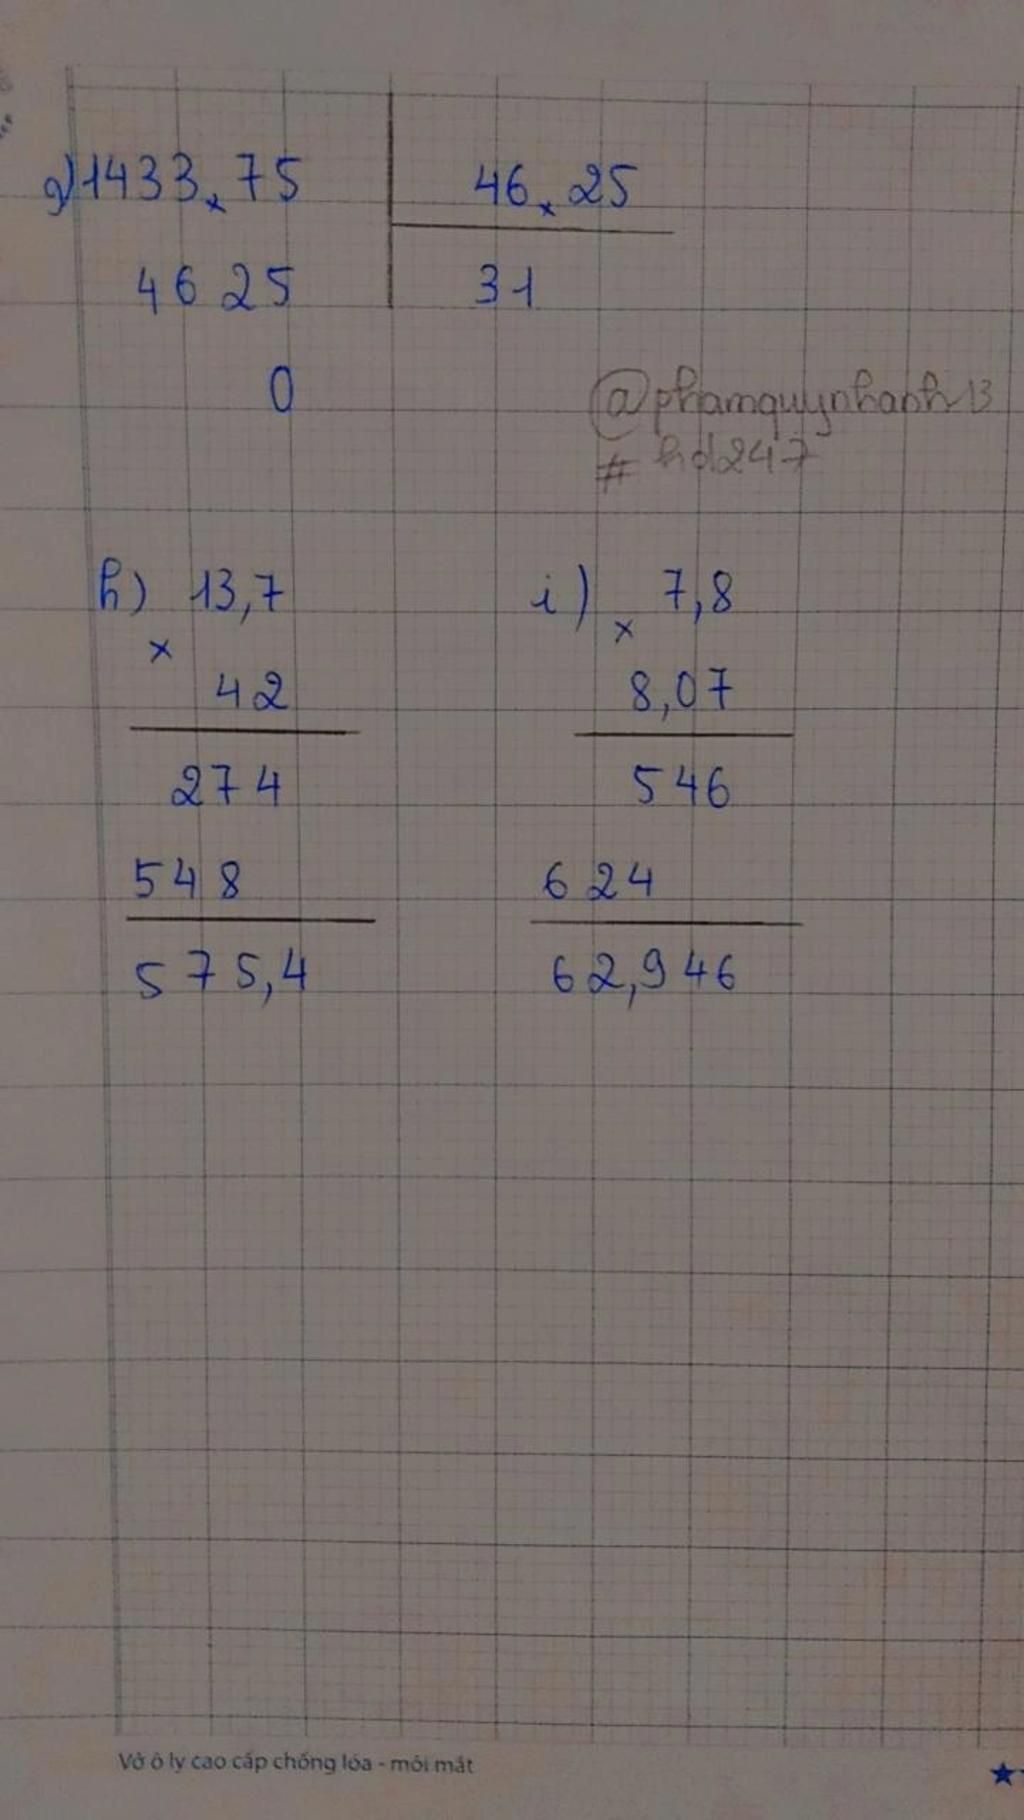 g) 1433,75 46,25
4625 31
0
@phamquynhanh13
# hd247
h) 13,7
×
42
274
548
575,4
i) 7,8
×
8,07
546
624
62,946
Vở ô ly cao cấp chống lóa - mỏi mắt